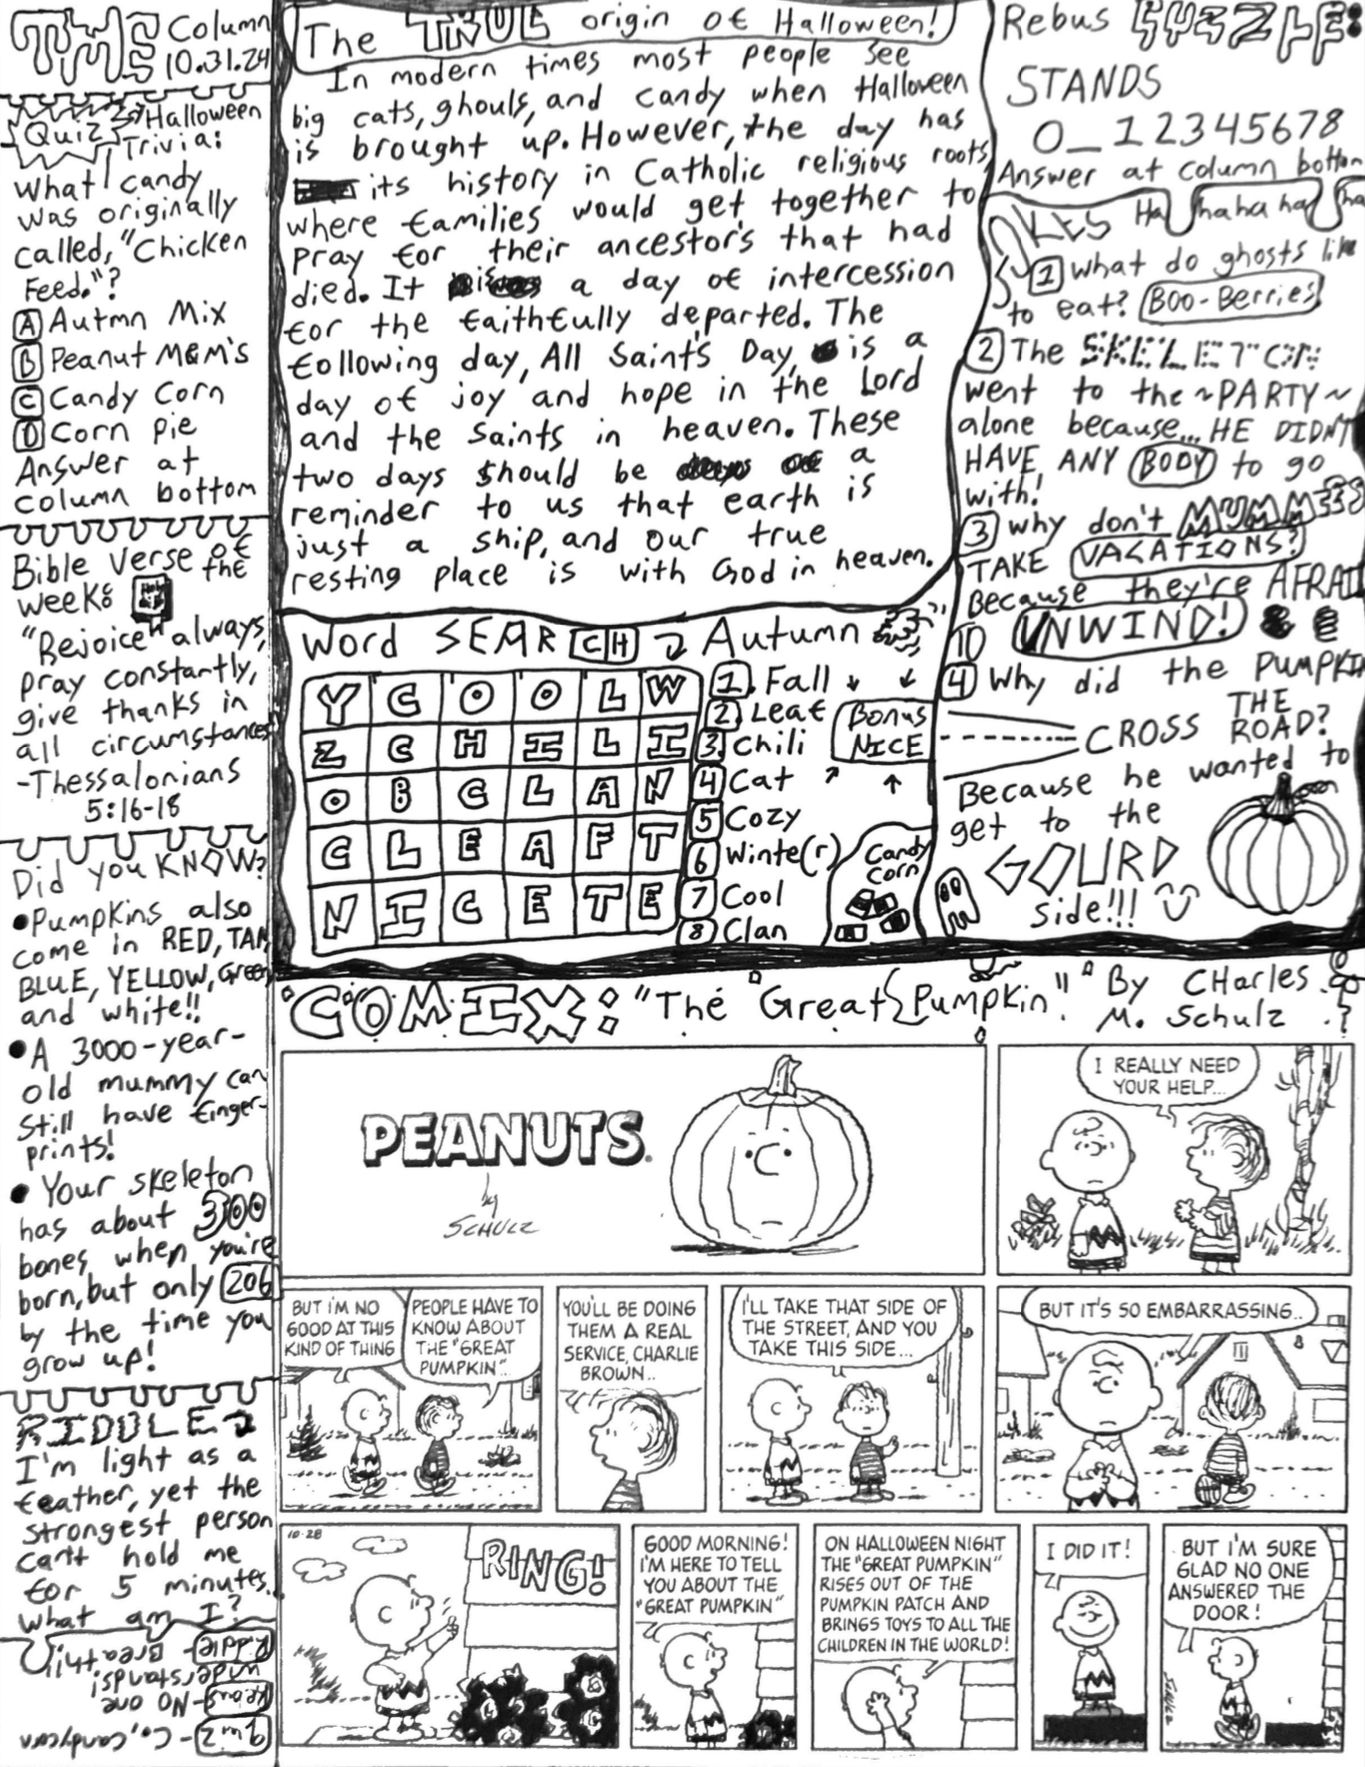 THE Column
10.31.24
Quiz Halloween
Trivia:
What candy
was originally
called, "Chicken
Feed."?
A Autmn Mix
B Peanut M&M's
C Candy Corn
D Corn pie
Answer at
column bottom
Bible Verse of
the
week:
"Rejoice always,
pray constantly,
give thanks in
all circumstances"
-Thessalonians
5:16-18
Did you KNOW?
•Pumpkins also
come in RED, TAN
BLUE, YELLOW, Green
and white!!
•A 3000-year-
old mummy can
still have finger-
prints!
• Your skeleton
has about 300
bones when you're
born, but only 206
by the time you
grow up!
RIDDLE
I'm light as a
feather, yet the
strongest person
can't hold me
for 5 minutes.
What am I?
Riddle- Breath!!
understands!
Rebus-No one
quiz-C., Candycorn
The TRUE origin of Halloween!
In modern times most people see
big cats, ghouls, and candy when Halloween
is brought up. However, the day has
its history in Catholic religious roots,
where families would get together to
pray for their ancestor's that had
died. It is a day of intercession
for the faithfully departed. The
following day, All Saint's Day, is a
day of joy and hope in the Lord
and the Saints in heaven. These
two days should be a
reminder to us that earth is
just a ship, and our true
resting place is with God in heaven.
Word SEARCH Autumn
Y C O O L W
Z C H I L I
O B C L A N
C L E A F T
N I C E T E
1. Fall
2 Leaf
3. Chili
4 Cat
5 Cozy
6 Winte(r)
7 Cool
8 Clan
Bonus
NICE
Candy
Corn
Rebus
STANDS
0_12345678
Answer at column bottom
Ha haha ha ha
1 What do ghosts like
to eat? Boo-Berries
2 The SKELETON
went to the ~PARTY~
alone because... HE DIDN'T
HAVE ANY BODY to go
with!
3 Why don't MUMMIES
TAKE VACATIONS?
Because they're AFRAID
TO UNWIND!
4 Why did the PUMPKIN
CROSS THE
ROAD?
Because he wanted to
get to the
GOURD
side!!!
COMIX: "The Great Pumpkin" By CHarles
M. Schulz
PEANUTS.
by
SCHULZ
I REALLY NEED
YOUR HELP...
BUT I'M NO
GOOD AT THIS
KIND OF THING
PEOPLE HAVE TO
KNOW ABOUT
THE "GREAT
PUMPKIN"...
YOU'LL BE DOING
THEM A REAL
SERVICE, CHARLIE
BROWN..
I'LL TAKE THAT SIDE OF
THE STREET, AND YOU
TAKE THIS SIDE...
BUT IT'S SO EMBARRASSING..
10-28
RING!
GOOD MORNING!
I'M HERE TO TELL
YOU ABOUT THE
"GREAT PUMPKIN"
ON HALLOWEEN NIGHT
THE "GREAT PUMPKIN"
RISES OUT OF THE
PUMPKIN PATCH AND
BRINGS TOYS TO ALL THE
CHILDREN IN THE WORLD!
I DID IT!
BUT I'M SURE
GLAD NO ONE
ANSWERED THE
DOOR!
SCHULZ